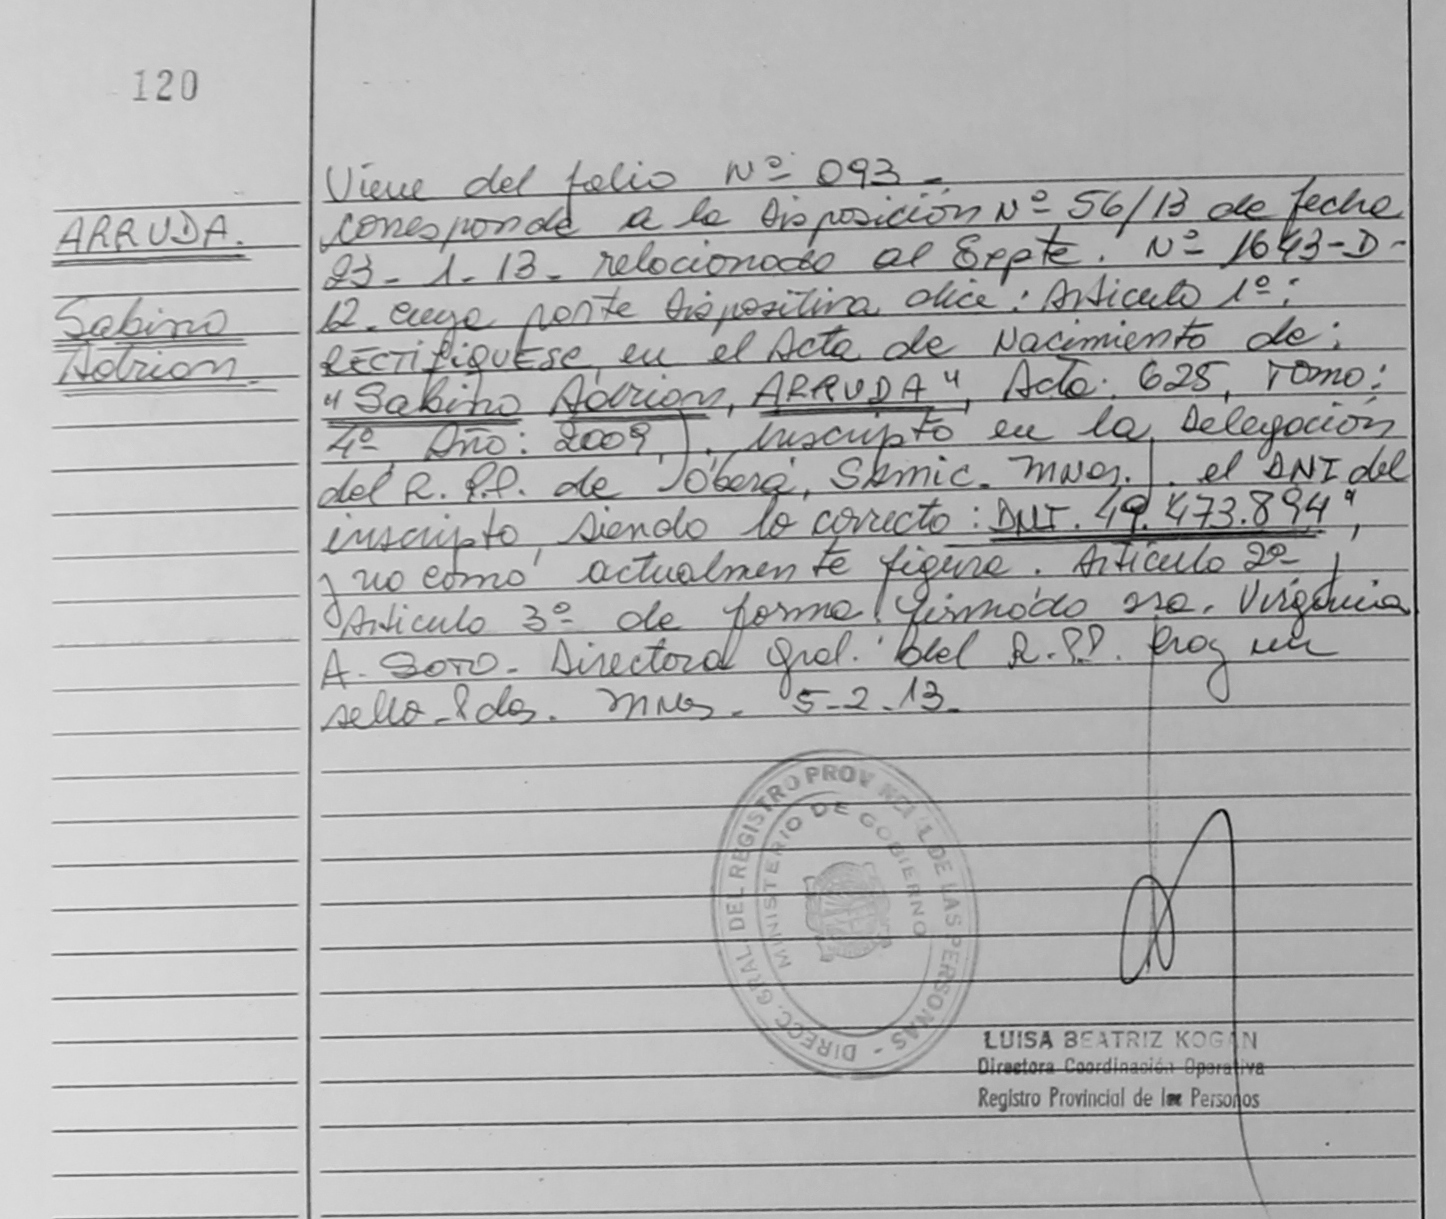 120
ARRUDA.
Sabino
Adrian.
Viene del folio Nº 093 -
corresponde a la Disposición Nº 56/13 de fecha
23-1-13- relacionado al Expte. Nº 1643-D-
12. cuya parte dispositiva dice: Articulo 1º:
RECTIFIQUESE, en el Acta de Nacimiento de:
"Sabino Adrian, ARRUDA", Acta: 625, Tomo:
4º Año: 2009, inscripto en la Delegación
del R.P.P. de Oberá, Mnes. el DNI del
inscripto, siendo lo correcto: DNI. 49.473.894",
y no como actualmente figura. Articulo 2º
Articulo 3º de forma. Firmado Sra. Virginia
A. Soto- Directora Gral. del R.P.P. hay un
sello. Pdas. Mnes. 5-2-13-
DIRECC. GRAL DEL REGISTRO PROVINCIAL DE LAS PERSONAS -
MINISTERIO DE GOBIERNO
LUISA BEATRIZ KOGAN
Directora Coordinación Operativa
Registro Provincial de las Personas